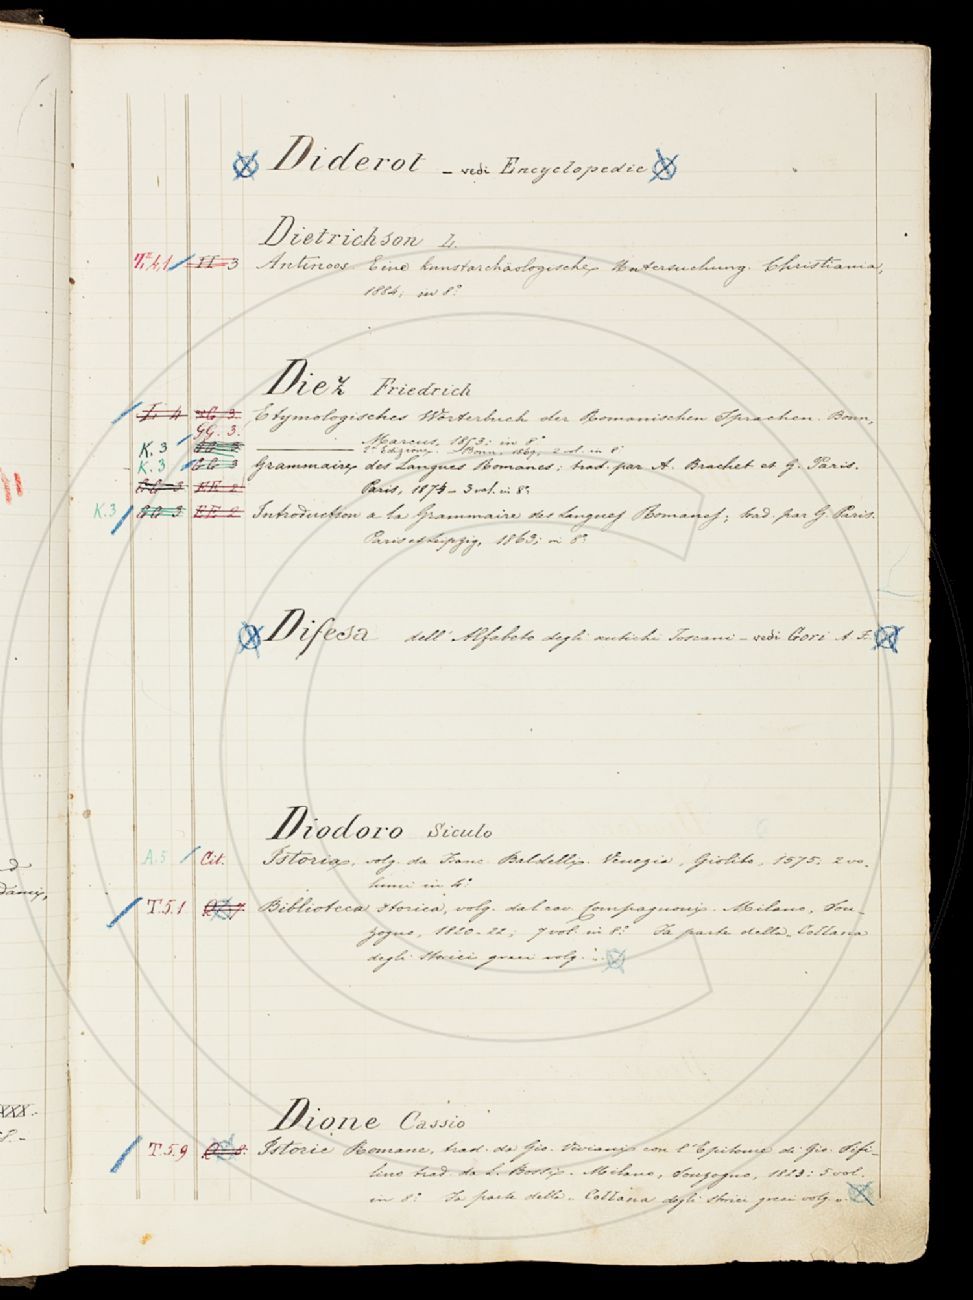 Diderot – vedi Encyclopedie
Dietrichson L.
II 3 Antinoos. Eine kunstarchäologische Untersuchung. Christiania,
1884; in 8.º
Diez Friedrich
Etymologisches Wörterbuch der Romanischen Sprachen. Bonn,
GG. 3.
Marcus, 1853; in 8.º
K. 3 2.ª Edizione. Bonn, 2 vol. in 8.º
K. 3 Grammaire des Langues Romanes; trad. par A. Brachet et G. Paris.
EE 2 Paris, 1874 – 3 vol. in 8.º
K. 3 EE 2 Introduction a la Grammaire des Langues Romanes; trad. par G. Paris.
Paris et Leipzig, 1863; in 8.º
Difesa dell' Alfabeto degli antichi Toscani – vedi Gori A. F.
Diodoro Siculo
A.5 Cit. Istoria, volg. da Franc. Baldelli. Venezia, Giolito, 1575. 2 vo-
lumi in 4.º
T.5.1 Biblioteca storica, volg. dal cav. Compagnoni. Milano, Son-
zogno, 1820-22; 7 vol. in 8.º Fa parte della Collana
degli storici greci volg.
Dione Cassio
T.5.9 Istorie Romane, trad. da Gio. Viviani con l'Epitome di Gio. Sifi-
lino trad. da L. Bossi. Milano, Sonzogno, 1823; 5 vol.
in 8.º Fa parte della Collana degli storici greci volg.